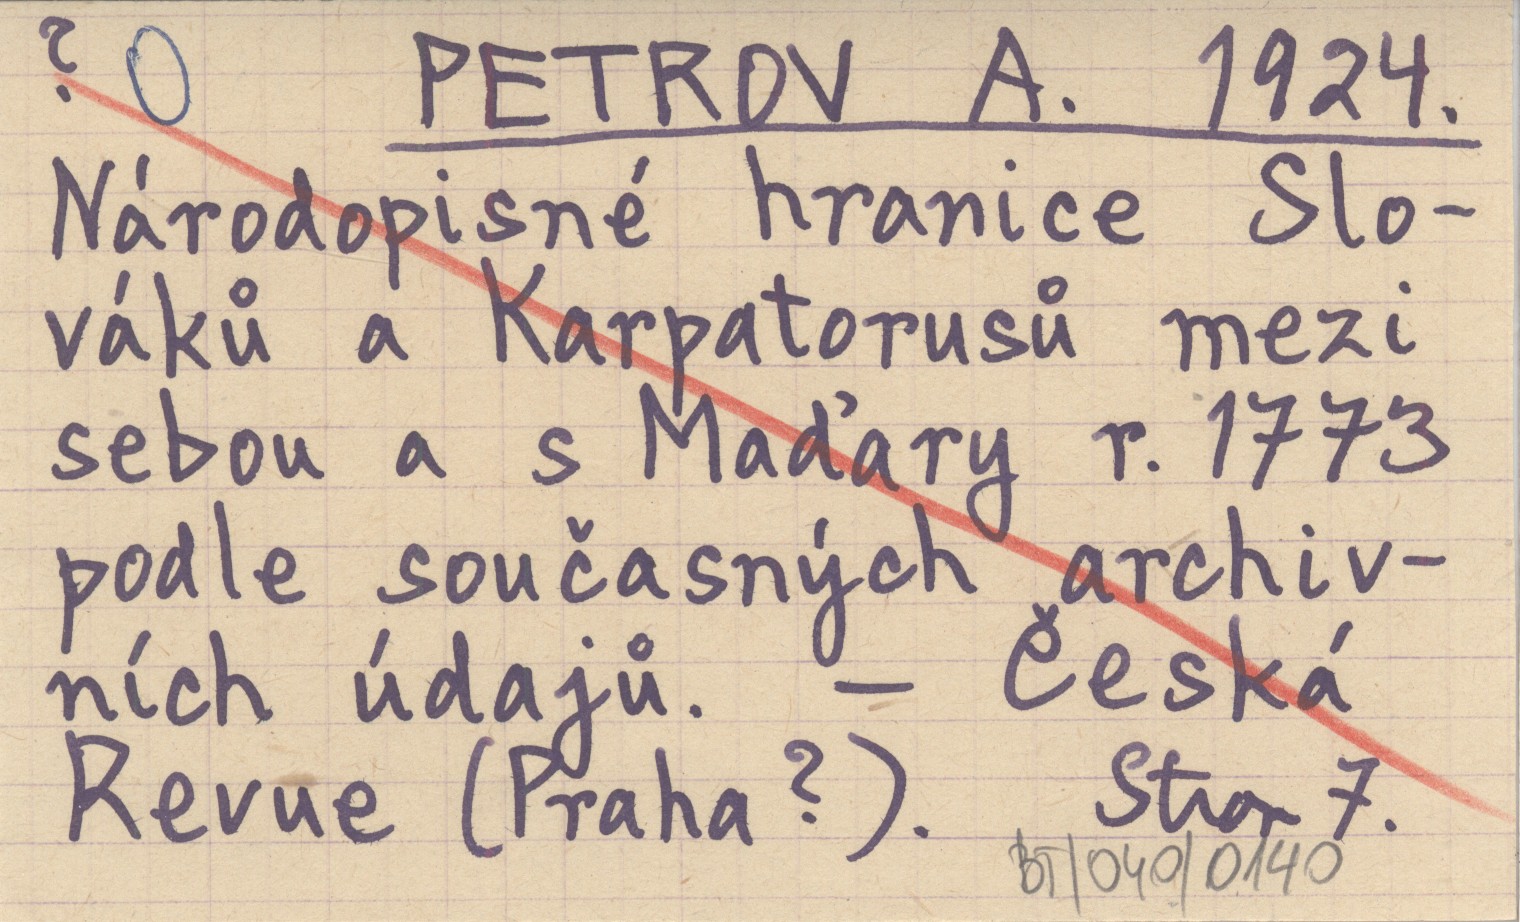 ? O PETROV A. 1924.
Národopisné hranice Slo-
váků a Karpatorusů mezi
sebou a s Maďary r. 1773
podle současných archiv-
ních údajů. — Česká
Revue (Praha?). Stron 7.
BT/040/0140